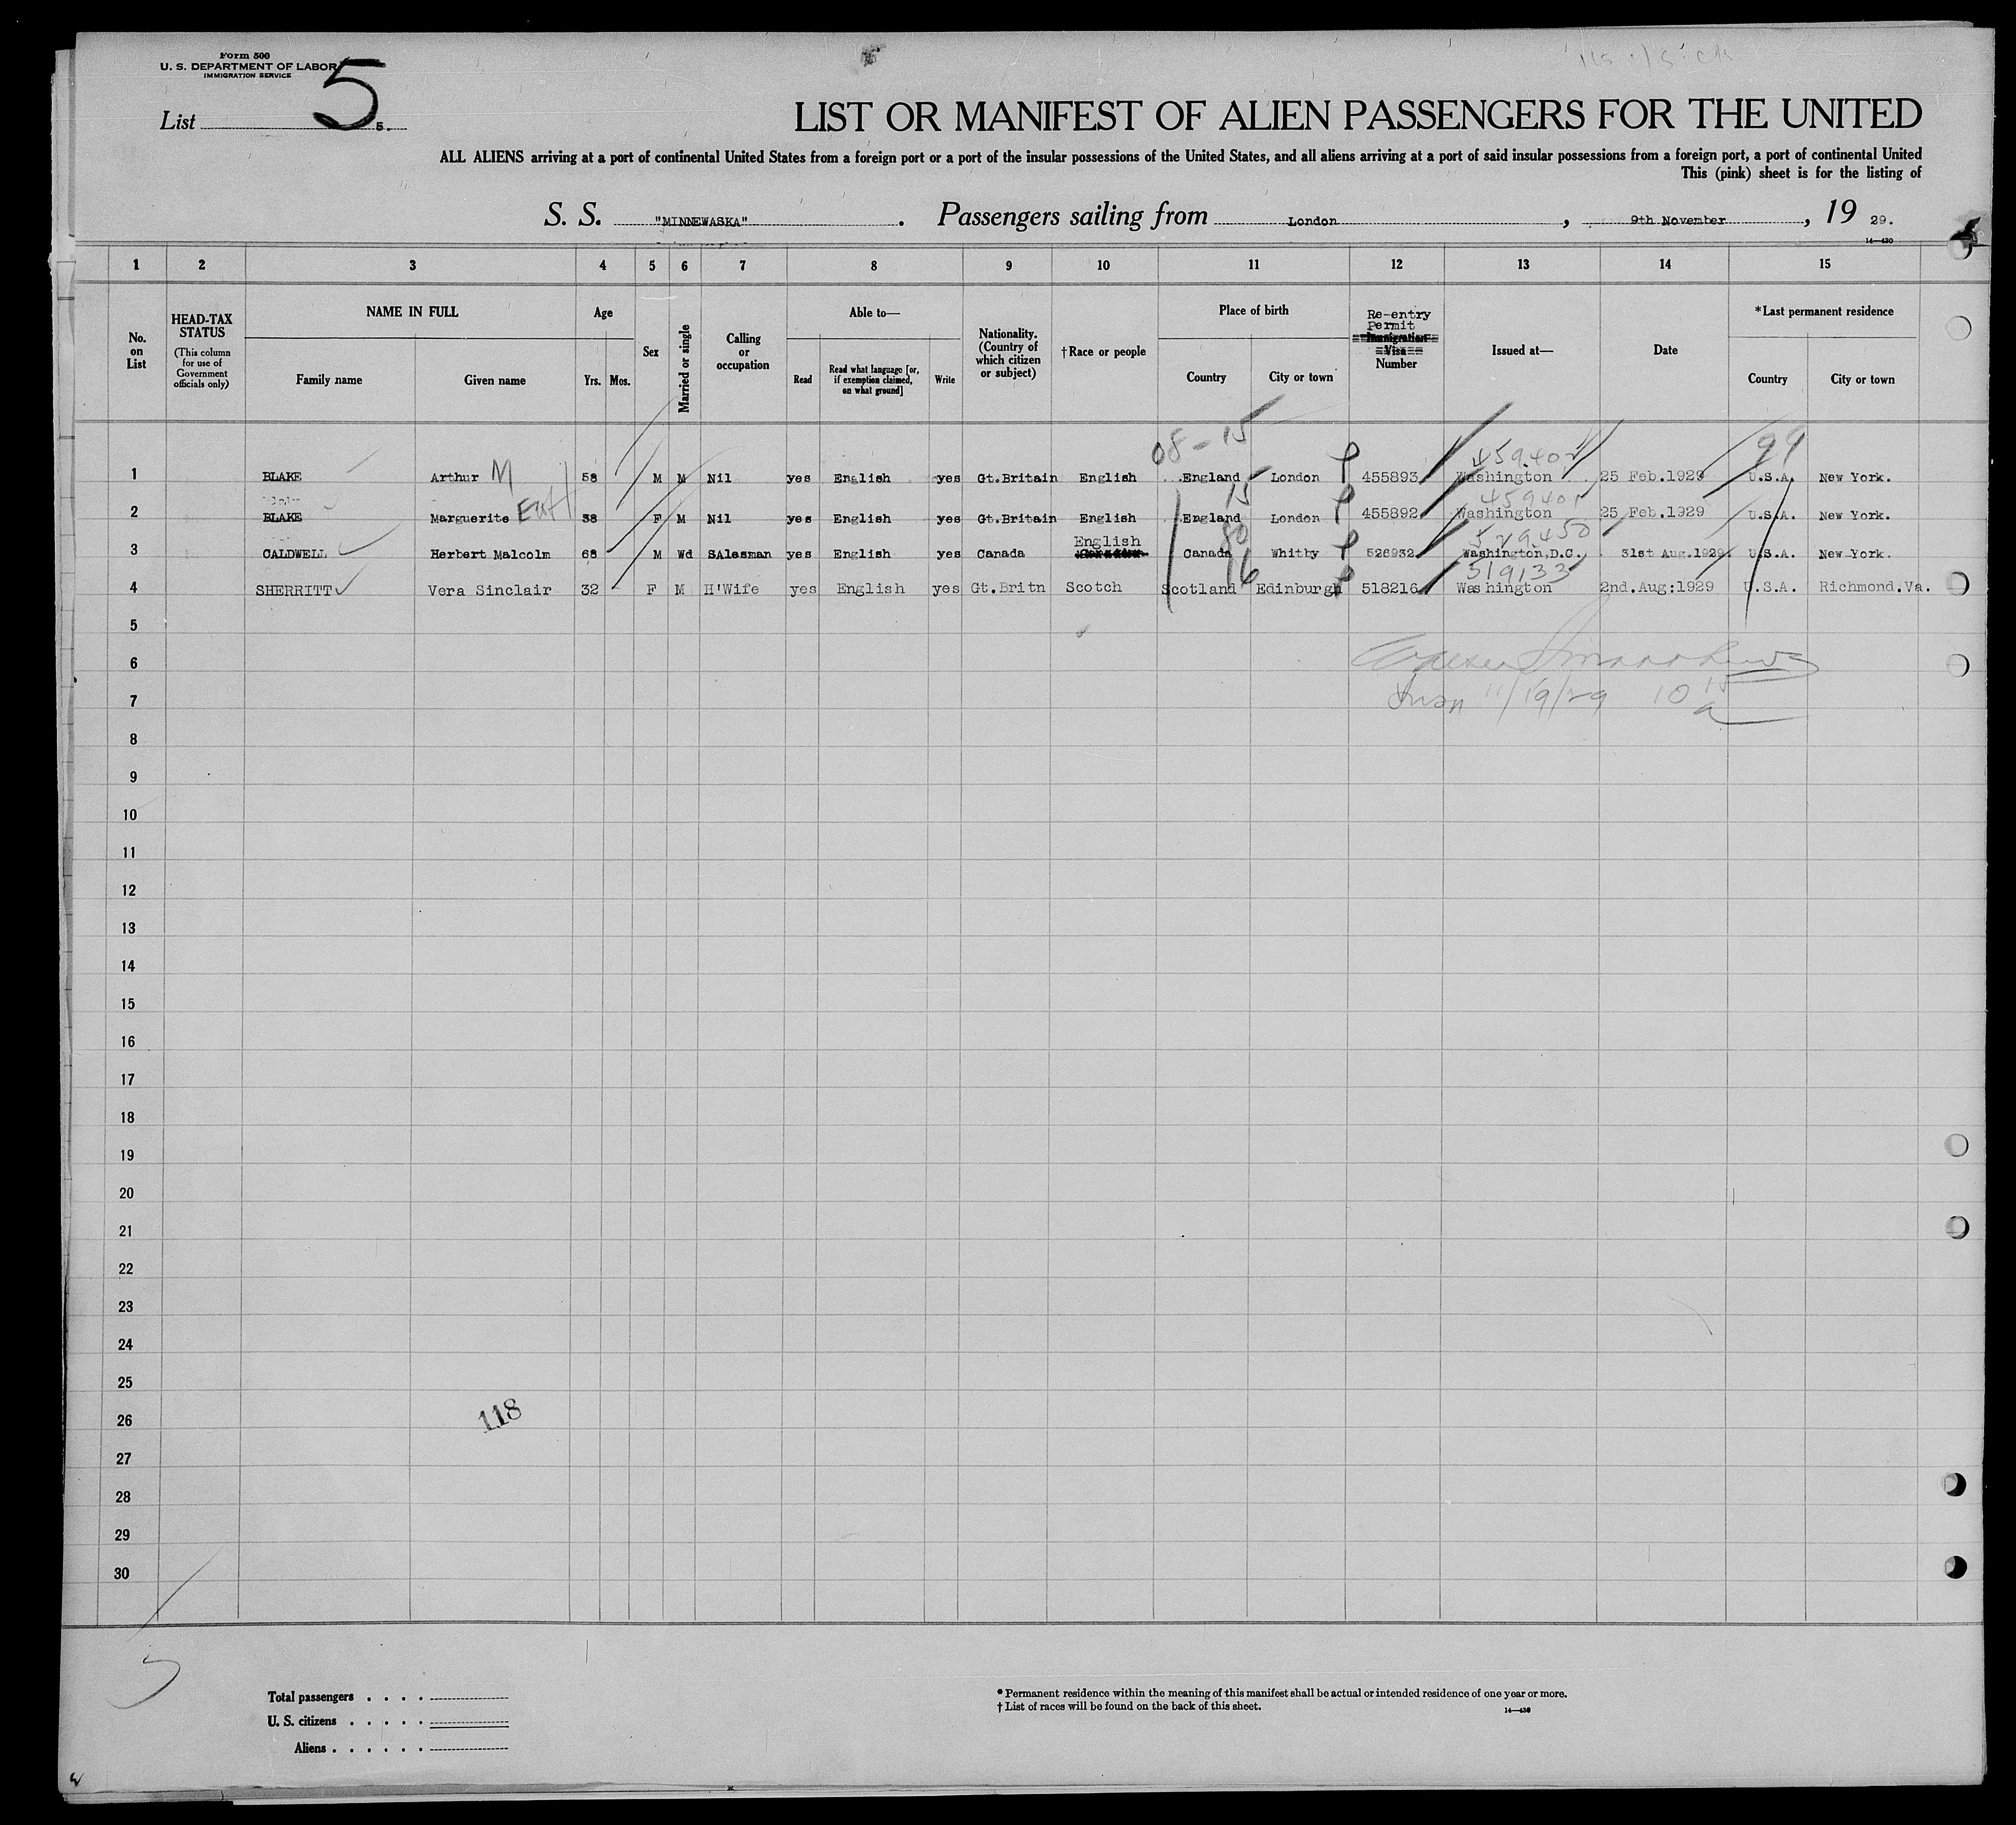 Form 500
U. S. DEPARTMENT OF LABOR
IMMIGRATION SERVICE
List 5 5.
LIST OR MANIFEST OF ALIEN PASSENGERS FOR THE UNITED
ALL ALIENS arriving at a port of continental United States from a foreign port or a port of the insular possessions of the United States, and all aliens arriving at a port of said insular possessions from a foreign port, a port of continental United
This (pink) sheet is for the listing of
S. S. "MINNEWASKA". Passengers sailing from London, 9th November, 19 29.
14—430
1 2 3 4 5 6 7 8 9 10 11 12 13 14 15
No. on List
HEAD-TAX STATUS (This column for use of Government officials only)
NAME IN FULL Family name Given name
Age Yrs. Mos.
Sex
Married or single
Calling or occupation
Able to— Read Read what language [or, if exemption claimed, on what ground] Write
Nationality. (Country of which citizen or subject)
†Race or people
Place of birth Country City or town
Re-entry Permit Immigration Visa Number
Issued at—
Date
*Last permanent residence Country City or town
08-15 459.402 99
1 BLAKE Arthur M 58 M M Nil yes English yes Gt.Britain English England London 455893 Washington 25 Feb.1929 U.S.A. New York.
15 459401
2 BLAKE Marguerite 38 F M Nil yes English yes Gt.Britain English England London 455892 Washington 25 Feb.1929 U.S.A. New York.
English 80 529.450
3 CALDWELL Herbert Malcolm 68 M Wd SAlesman yes English yes Canada Canada Whitby 526932 Washington,D.C. 31st Aug.1929 U.S.A. New York.
16 519133
4 SHERRITT Vera Sinclair 32 F M H'Wife yes English yes Gt.Britn Scotch Scotland Edinburgh 518216 Washington 2nd.Aug:1929 U.S.A. Richmond.Va.
5
6
7 11/19/29 10 15 a
8
9
10
11
12
13
14
15
16
17
18
19
20
21
22
23
24
25
26 118
27
28
29
30
5
Total passengers . . . .
U. S. citizens . . . . .
Aliens . . . . . .
* Permanent residence within the meaning of this manifest shall be actual or intended residence of one year or more.
† List of races will be found on the back of this sheet.
14—430